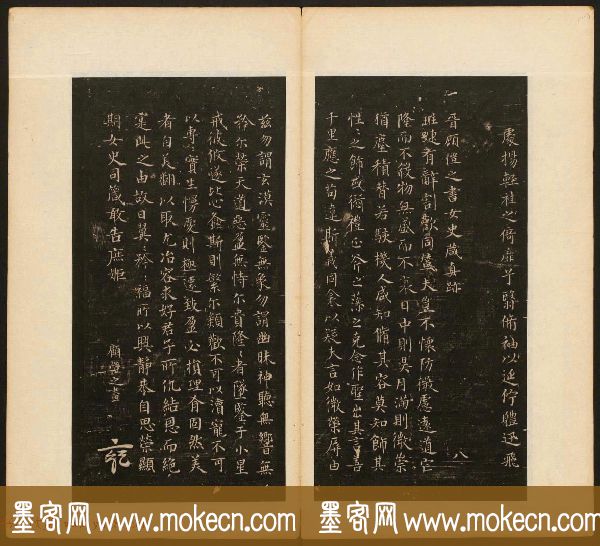 處揚輕袿之倚靡兮翳脩袖以延佇體迅飛
一晉顧愷之書女史箴真跡
班婕有辭割歡同輦夫豈不懷防微慮遠道罔
隆而不殺物無盛而不衰日中則昃月滿則微崇
猶塵積替若駭機人咸知脩其容莫知飾其
性〻之飾或愆禮正斧之藻之克念作聖出其言善
千里應之苟違斯義同衾以疑夫言如微榮辱由
八
茲勿謂玄漠靈鑒無象勿謂幽昧神聽無響無
矜尔榮天道惡盈無恃尔貴隆〻者墜鑒于小星
戒彼攸遂比心螽斯則繁尔類歡不可以瀆寵不可
以專〻實生慢愛則極遷致盈必損理有固然美
者自美翩以取尤冶容求好君子所仇結恩而絕
寔此之由故曰翼〻矜〻福所以興靜恭自思榮顯
期女史司箴敢告庶姬
顧愷之畫
墨客网 www.mokecn.com 墨客网 www.mokecn.com